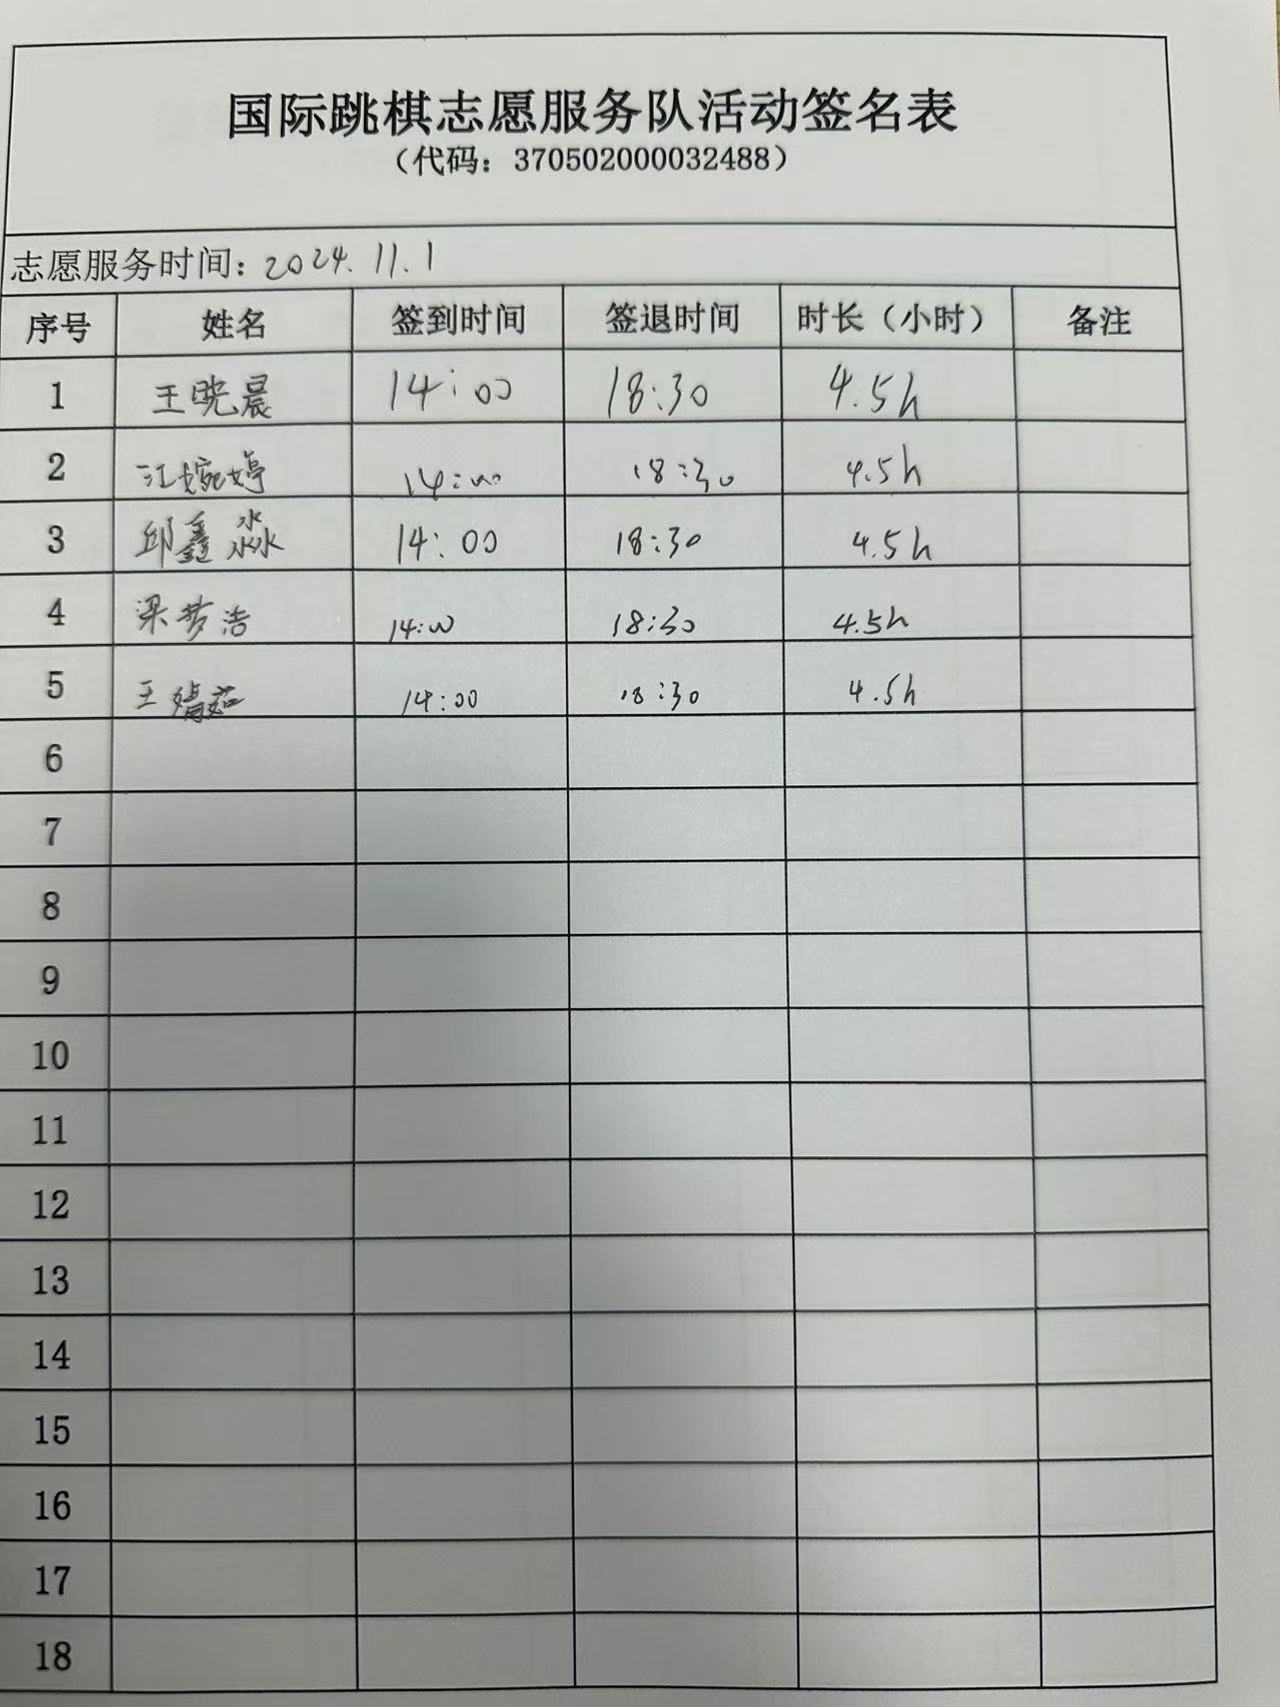 国际跳棋志愿服务队活动签名表
（代码：370502000032488）
志愿服务时间：2024.11.1
序号 姓名 签到时间 签退时间 时长（小时） 备注
1 王晓晨 14:00 18:30 4.5h
2 江婉婷 14:00 18:30 4.5h
3 邱鑫淼 14:00 18:30 4.5h
4 梁梦浩 14:00 18:30 4.5h
5 王 14:00 18:30 4.5h
6
7
8
9
10
11
12
13
14
15
16
17
18